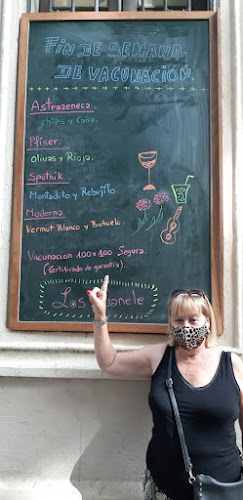 FIN DE SEMANA
DE VACUNACIÓN.
Astrazeneca.
chips y Caña.
Pfiser.
Olivas y Rioja.
Sputnik.
Montadito y Rebujito.
Moderna
Vermut Blanco y Buñuelo.
Vacunacion 100x100 Segura.
(Certificado de garantía)
Los